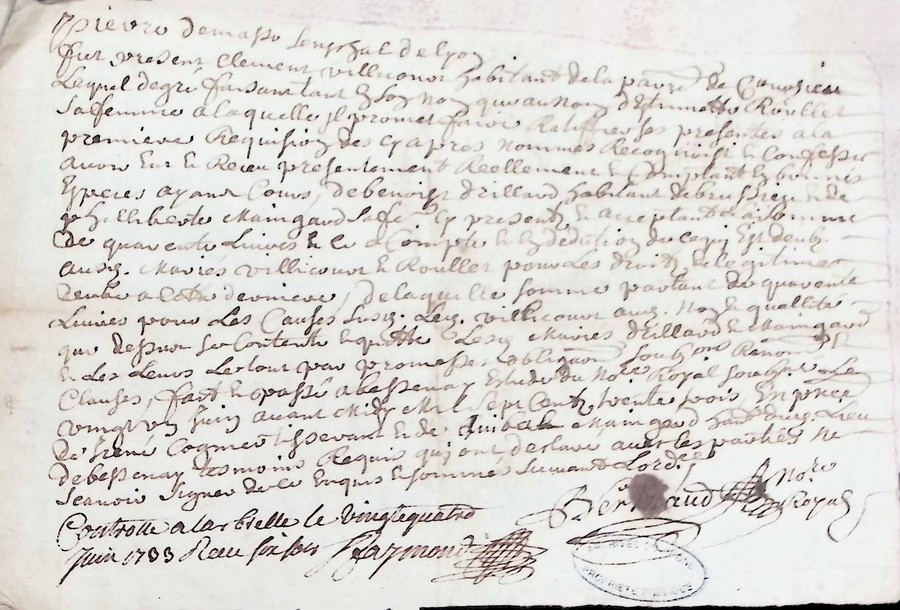 pierre demasso senechal de lyon
fut present Clement villicourt habitant de la paroisse de
Lequel degré faisant tant En son Nom que au nom d'Estiennette Roullet
sa femme a laquelle jl promet faire Ratiffier ses presentes a la
premiere Requision des cy apres nommés Recognoist et Confesse
avoir Eut et Receu presentement Reellement et Comptant En bonnes
Especes ayant Cours, de benoist drillard habitant de brussieu et de
philliberte Maingard sa fe. Cy presente et acceptante la somme
De quarente Livres et ce a Compte et En dedution de ce qui Est deub
aux. Mariés villicourt et Roullet pour Les droits et legitimes
a cette derniere, de laquelle somme partant de quarente
Livres pour Les Causes susd. Led. villicourt aux. Nom et quallité
que dessus se Contente et quitte Lesd. Mariés drillard et Maingard
et Les Leurs Le tout par promesses obligaon Soubmon Renonon
Clauses, fait et passé a bessenay Estude du No.re Royal soubz.e Le
vingt Juin avant Midy Mil sept Cents trente trois, En pnce
De Cognier tisserant et de Maingard dud. Lieu
de bessenay tesmoins Requis qui ont declare avec les parties ne
scavoir signer de ce Enquis et sommés suivant Lord.ce
Berthaud No.re Royal
Controllé a larbrelle le vingtquatre
juin 1733 Receu six sols Raymond